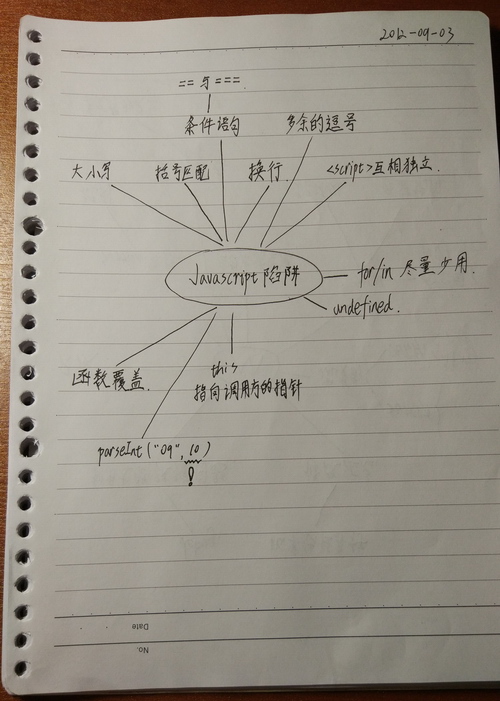 2012-09-03
== 与 ===
条件语句
多余的逗号
大小写
括号匹配
换行.
<script>互相独立.
Javascript陷阱
for/in 尽量少用.
undefined.
函数覆盖.
this
指向调用方的指针
parseInt("09",10)
!
Date
No.